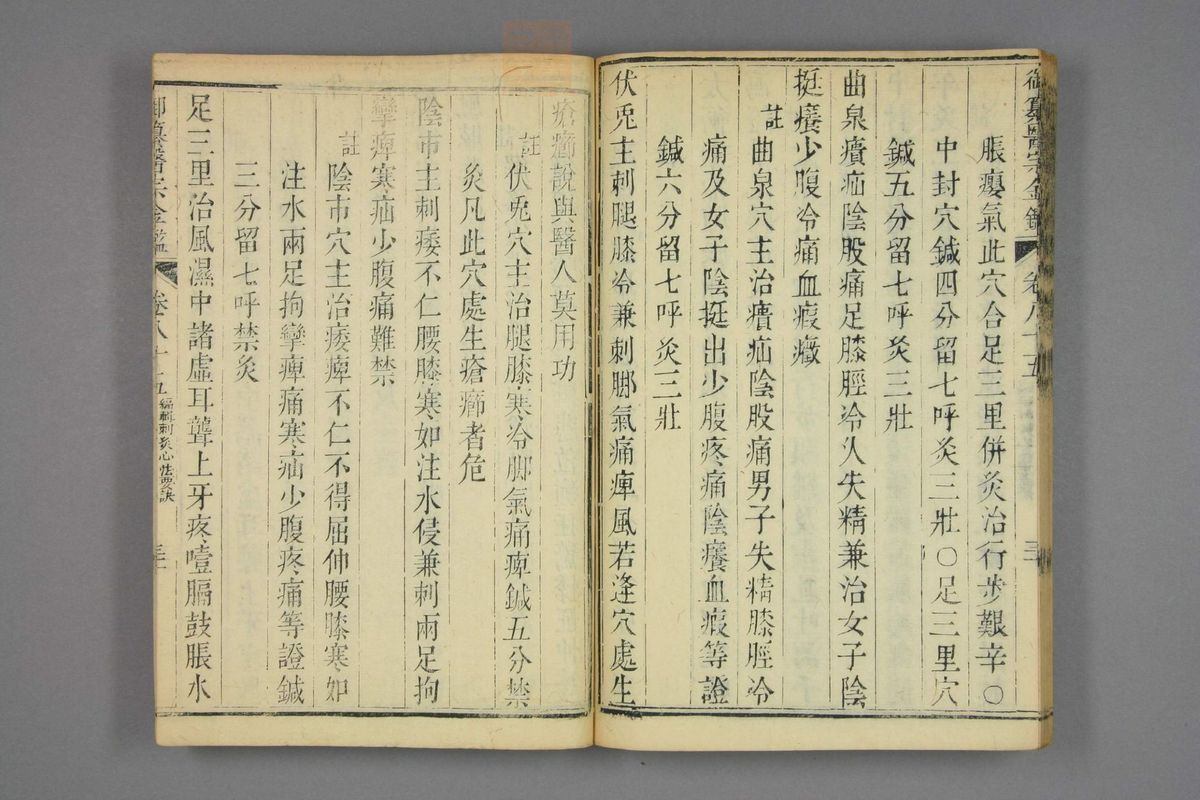 御纂醫宗金鑑 卷八十五
脹癭氣此穴合足三里併灸治行步艱辛〇
中封穴鍼四分留七呼灸三壯〇足三里穴
鍼五分留七呼灸三壯
曲泉㿉疝陰股痛足膝脛冷久失精兼治女子陰
挺癢少腹冷痛血瘕癥
註曲泉穴主治㿉疝陰股痛男子失精膝脛冷
痛及女子陰挺出少腹疼痛陰癢血瘕等證
鍼六分留七呼灸三壯
伏兎主刺腿膝冷兼刺脚氣痛痺風若逢穴處生
瘡癤說與醫人莫用功
註伏兎穴主治腿膝寒冷脚氣痛痺鍼五分禁
灸凡此穴處生瘡癤者危
陰市主刺痿不仁腰膝寒如注水侵兼刺兩足拘
攣痺寒疝少腹痛難禁
註陰市穴主治痿痺不仁不得屈伸腰膝寒如
注水兩足拘攣痺痛寒疝少腹疼痛等證鍼
三分留七呼禁灸
足三里治風濕中諸虛耳聾上牙疼噎膈鼓脹水
御纂醫宗金鑑 卷八十五 編輯刺灸心法要訣